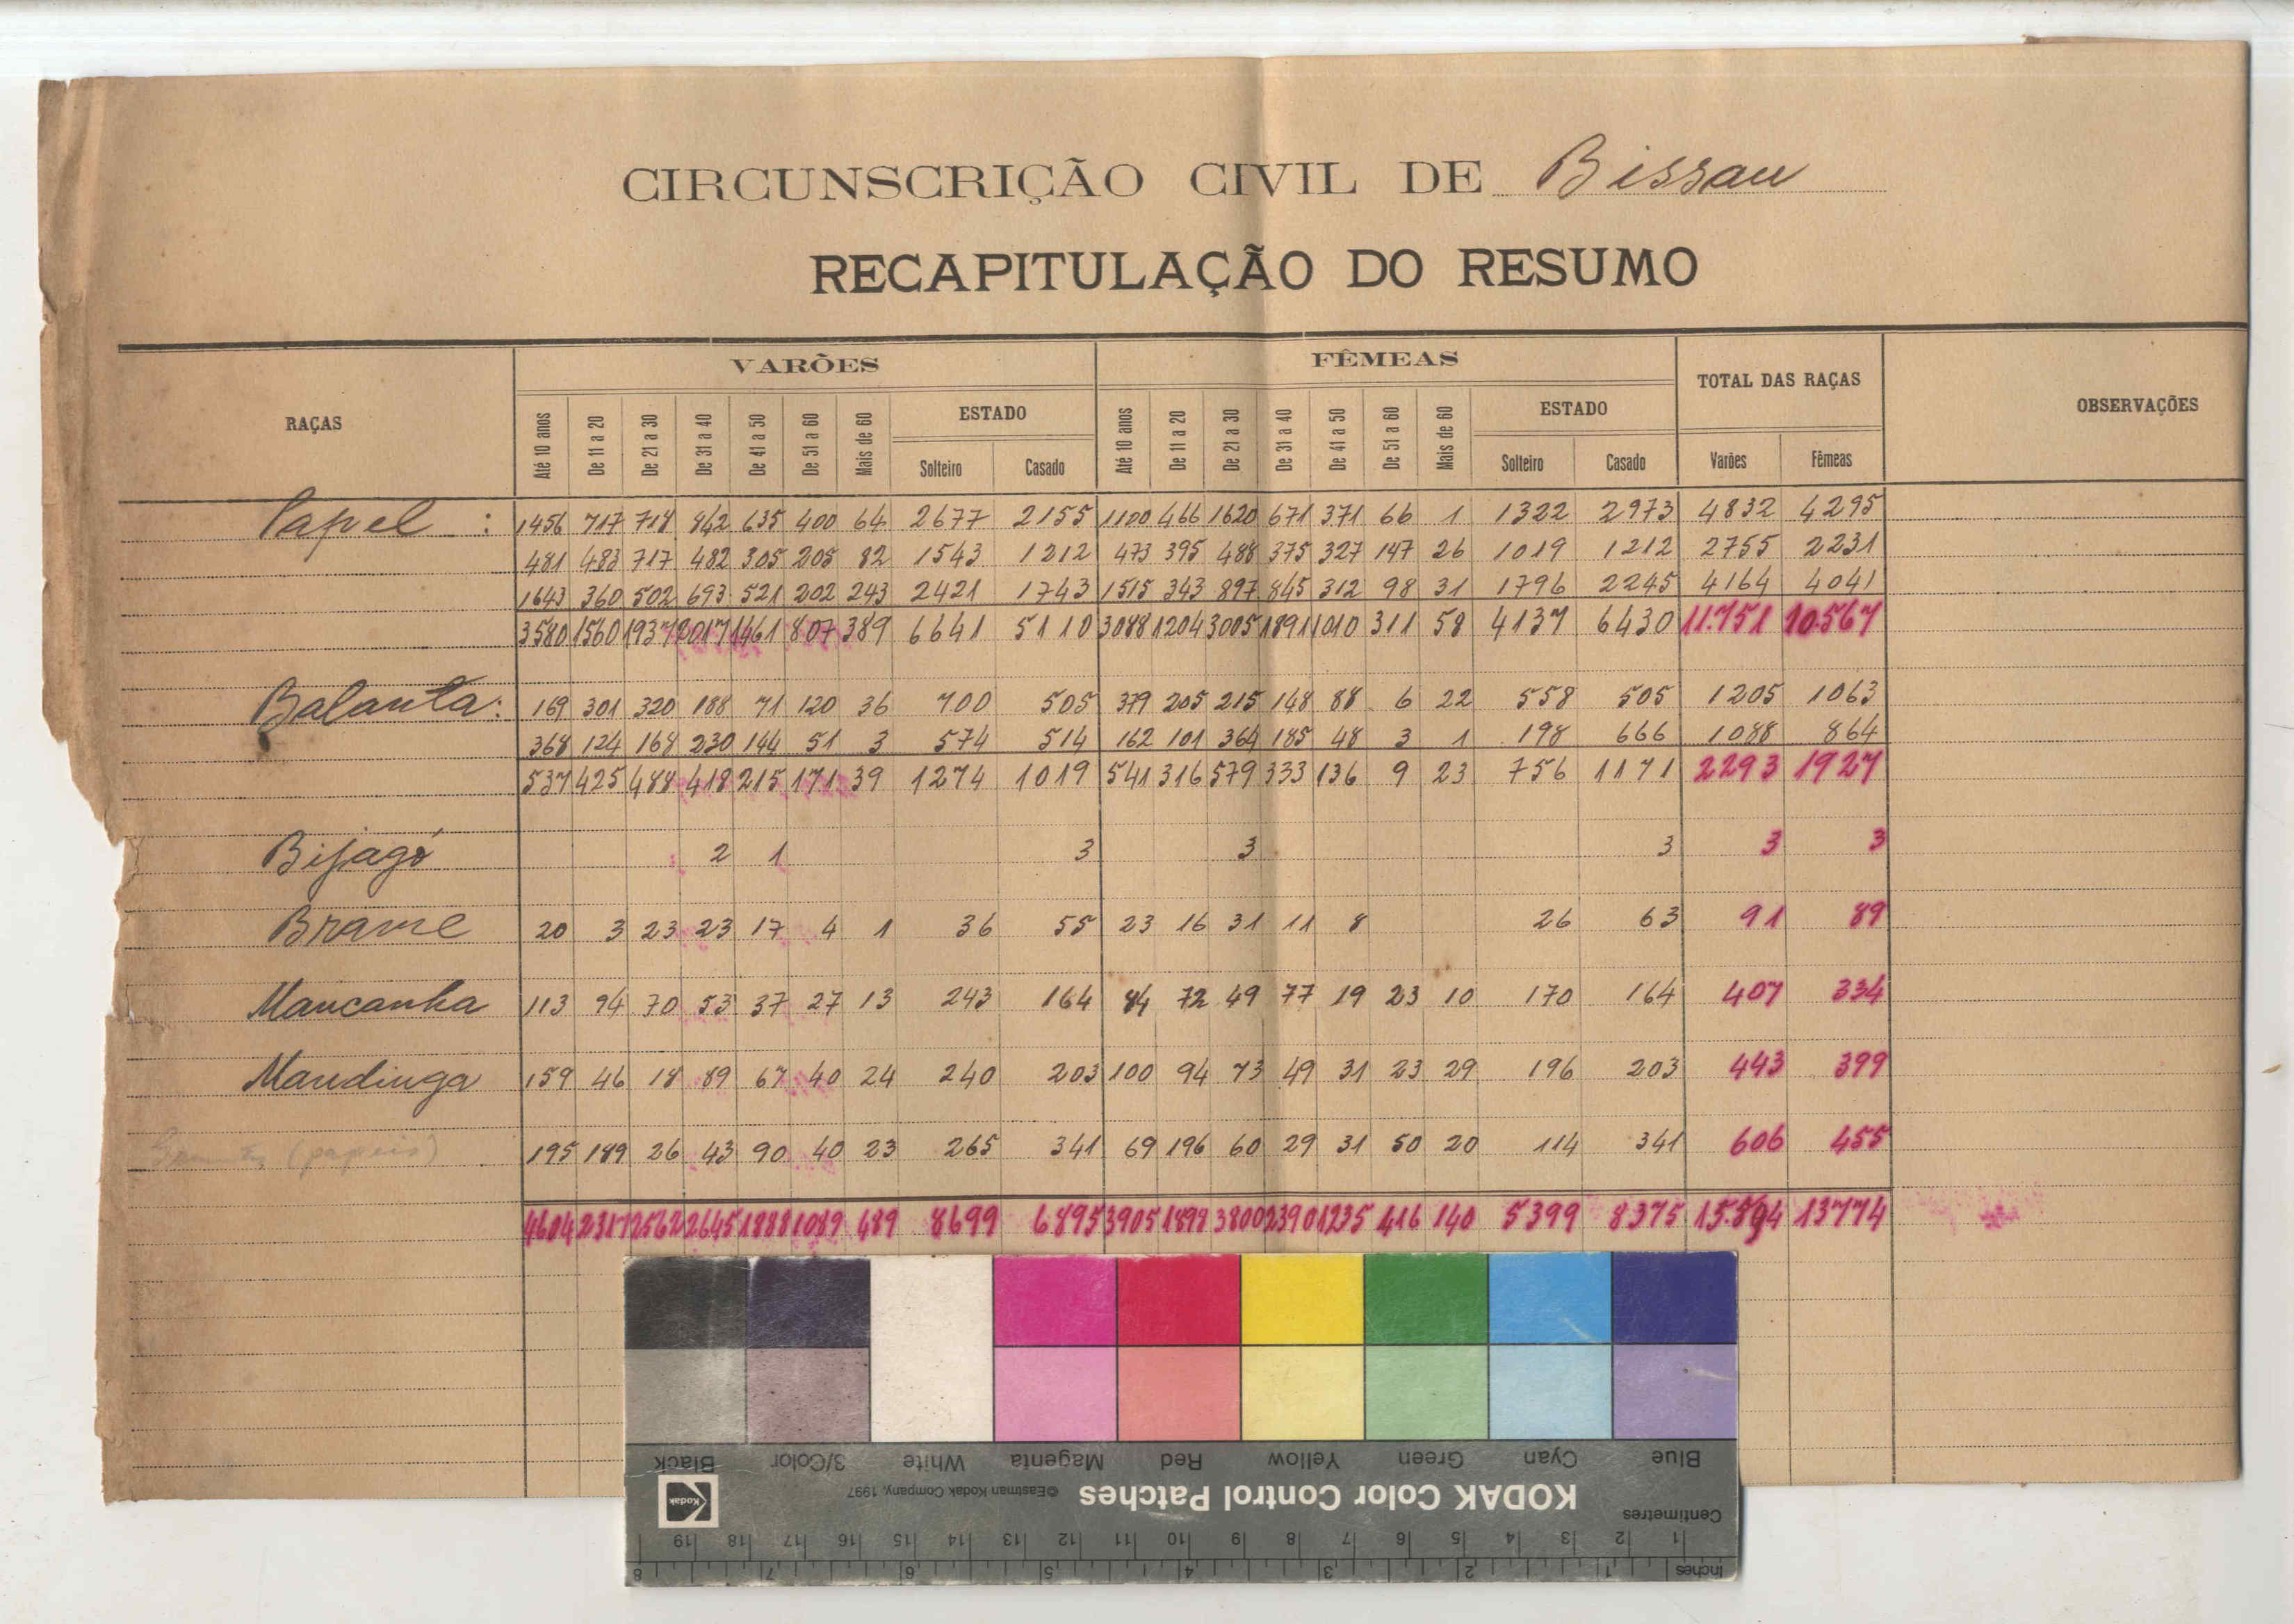 CIRCUNSCRIÇÃO CIVIL DE Bissau
RECAPITULAÇÃO DO RESUMO
RAÇAS VARÕES FÊMEAS TOTAL DAS RAÇAS OBSERVAÇÕES
Até 10 anos De 11 a 20 De 21 a 30 De 31 a 40 De 41 a 50 De 51 a 60 Mais de 60 ESTADO Solteiro Casado Até 10 anos De 11 a 20 De 21 a 30 De 31 a 40 De 41 a 50 De 51 a 60 Mais de 60 ESTADO Solteiro Casado Varões Fêmeas
Papel : 1456 717 718 842 635 400 64 2677 2155 1100 466 1620 671 371 66 1 1322 2973 4832 4295
481 483 717 482 305 205 82 1543 1212 473 395 488 375 327 147 26 1019 1212 2755 2231
1643 360 502 693 521 202 243 2421 1743 1515 343 897 845 312 98 31 1796 2245 4164 4041
3580 1560 1937 2017 1461 807 389 6641 5110 3088 1204 3005 1891 1010 311 58 4137 6430 11.751 10.567
Balanta: 169 301 320 188 71 120 36 700 505 379 205 215 148 88 6 22 558 505 1205 1063
368 124 168 230 144 51 3 574 514 162 101 364 185 48 3 1 198 666 1088 864
537 425 488 418 215 171 39 1274 1019 541 316 579 333 136 9 23 756 1171 2293 1927
Bijagó 2 1 3 3 3 3 3
Brame 20 3 23 23 17 4 1 36 55 23 16 31 11 8 26 63 91 89
Mancanha 113 94 70 53 37 27 13 243 164 84 72 49 77 19 23 10 170 164 407 334
Mandinga 159 46 18 89 67 40 24 240 203 100 94 73 49 31 23 29 196 203 443 399
(papeis) 195 189 26 43 90 40 23 265 341 69 196 60 29 31 50 20 114 341 606 455
4604 2317 2562 2645 1888 1089 489 8699 6895 3905 1899 3800 2390 1235 416 140 5399 8375 15.594 13774
Black 3/Color White Magenta Red Yellow Green Cyan Blue
Kodak
KODAK Color Control Patches ©Eastman Kodak Company, 1997
Centimetres
1 2 3 4 5 6 7 8 9 10 11 12 13 14 15 16 17 18 19
Inches 1 2 3 4 5 6 7 8